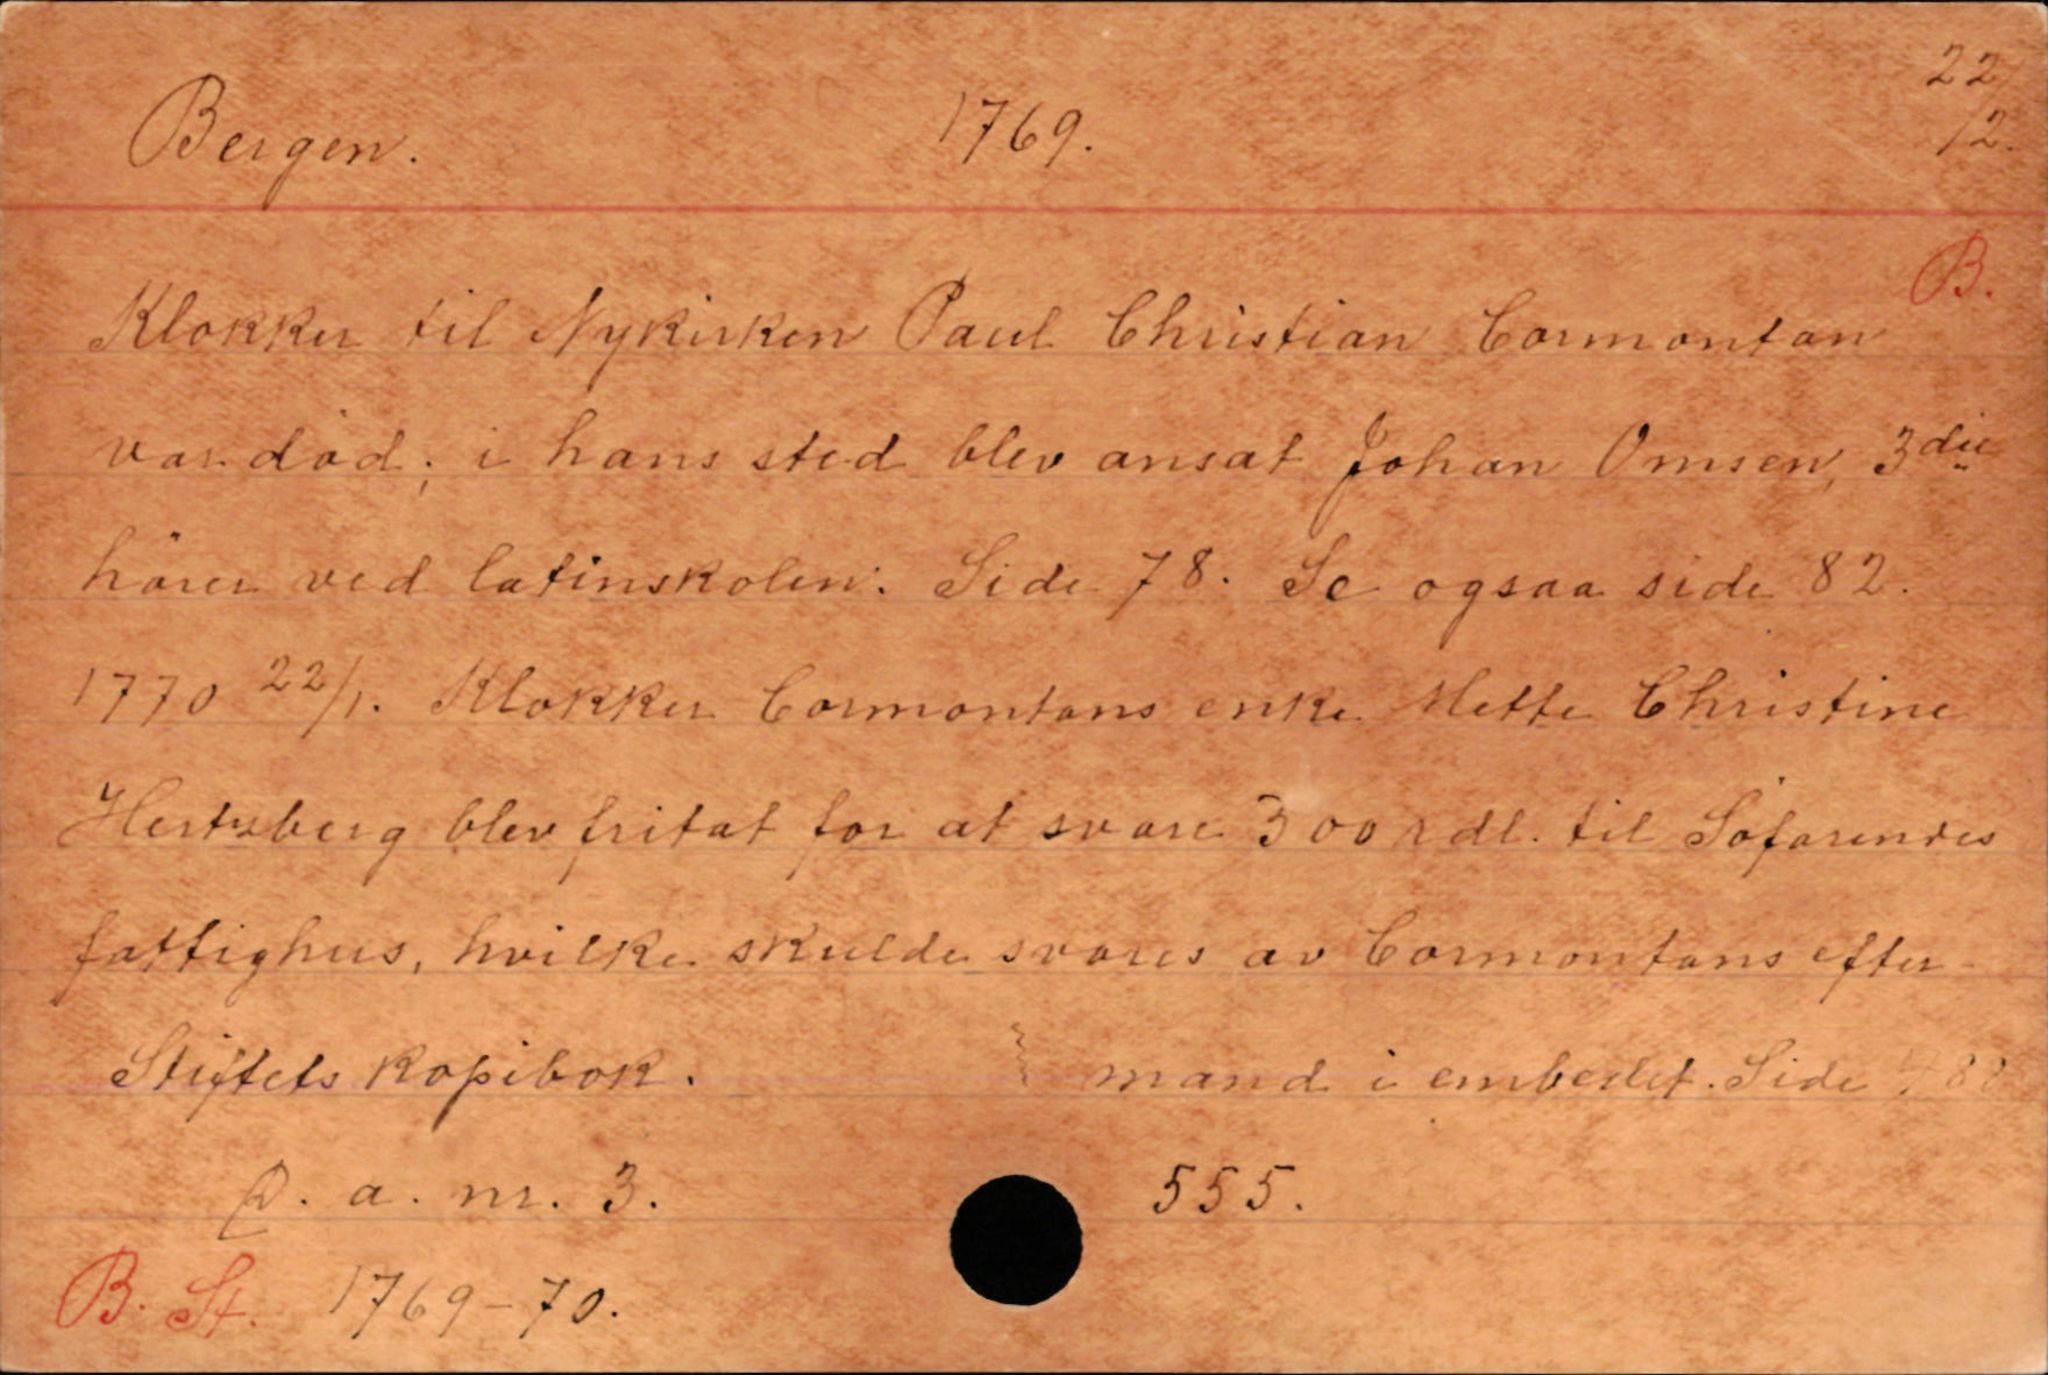 Bergen. 1769. 22/12.
B.
Klokker til Nykirken Paul Christian Cormontan
var död; i hans sted blev ansat Johan Omsen, 3die
hörer ved latinskolen. Side 78. Se ogsaa side 82.
1770 22/1. Klokker Cormontans enke Mette Christine
Hertzberg blev fritat for at svare 300 rdl. til Söfarendes
fattighus, hvilke skulde svares av Cormontans efter-
Stiftets kopibok. mand i embedet. Side
D. a. nr. 3. 555.
B. St. 1769-70.